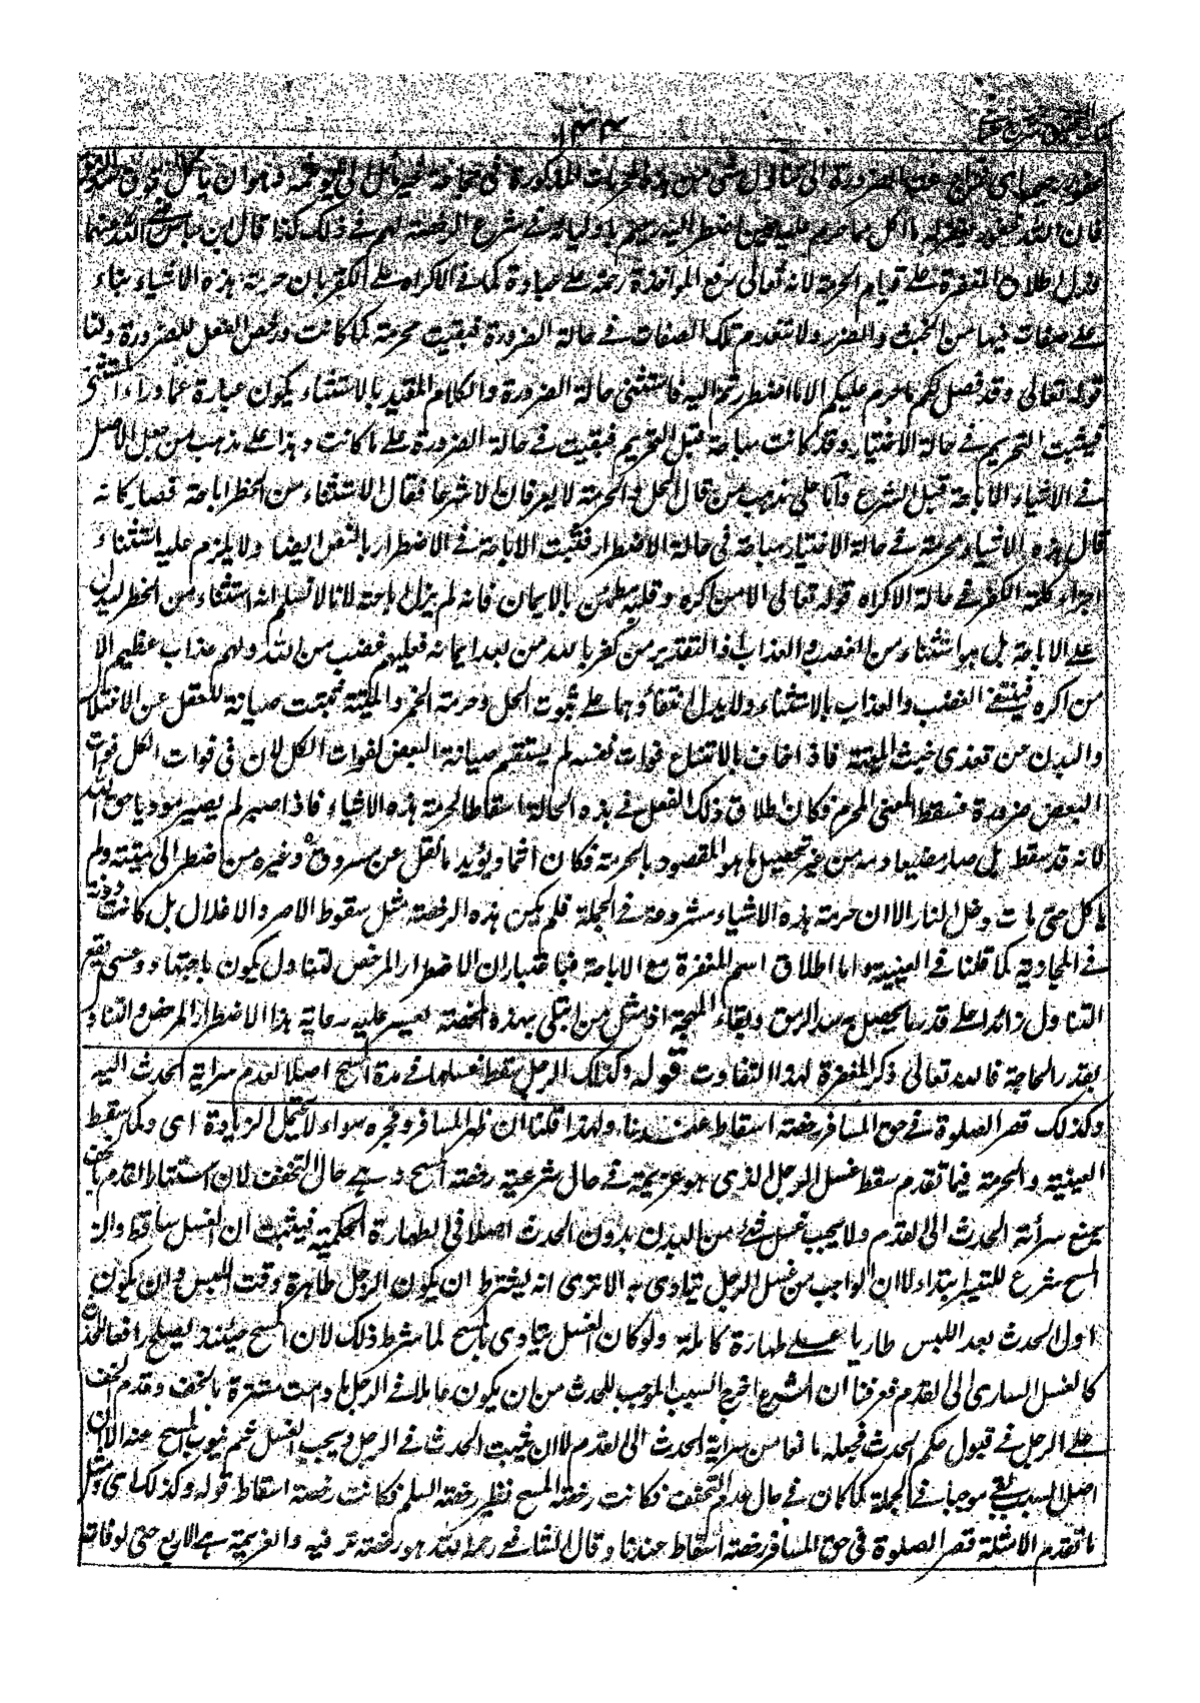 ١٣٣
غفور رحيم اى فمن دعته الضرورة الى تناول شئ من هذه المحرمات المذكورة فى مجاعة غير مائل الى ما يؤثمه وهو ان ياكل فوق
فان الله غفور يغفر له ما اكل مما حرم عليه حين اضطر اليه رحيم باوليائه فى شرع الرخصة لهم فى ذلك كذا قال ابن عباس رضى الله عنهما
فدل اطلاق المغفرة على قيام الحرمة لانه تعالى رفع المؤاخذة رحمة على عباده كما فى الاكراه على الكفر بان حرمة هذه الاشياء بناء
على صفات فيها من الخبث والضرر ولا تنعدم تلك الصفات فى حالة الضرورة فبقيت محرمة كما كانت ورخص الفعل للضرورة ولنا
قوله تعالى وقد فصل لكم ما حرم عليكم الا ما اضطررتم اليه فاستثنى حالة الضرورة والكلام المقيد بالاستثناء يكون عبارة عما وراء المستثنى
فيثبت التحريم فى حالة الاختيار وقد كانت مباحة قبل التحريم فبقيت فى حالة الضرورة على ما كانت وهذا على مذهب من جعل الاصل
فى الاشياء الاباحة قبل الشرع واما على مذهب من قال الحل والحرمة لا يعرفان الا شرعا فقال الاستثناء من الحظر اباحة فصار كانه
قال هذه الاشياء محرمة فى حالة الاختيار مباحة فى حالة الاضطرار فثبت الاباحة فى الاضطرار بالنص ايضا ولا يلزم عليه استثناء
اجراء كلمة الكفر فى حالة الاكراه قوله تعالى الا من اكره وقلبه مطمئن بالايمان فانه لم يزل اباحته لانا لا نسلم انه استثناء من الحظر ليدل
على الاباحة بل هو استثناء من الغضب والعذاب اذ التقدير من كفر بالله من بعد ايمانه فعليهم غضب من الله ولهم عذاب عظيم الا
من اكره فينتفى الغضب والعذاب بالاستثناء ولا يدل انتفاؤهما على ثبوت الحل وحرمة الخمر والميتة ثبتت صيانة للعقل عن الاختلال
والبدن عن تعدى خبث الميتة فاذا خاف بالامتناع فوات نفسه لم يستقم صيانة البعض لفوات الكل لان فى فوات الكل فوات
البعض ضرورة فسقط المعنى المحرم فكان اطلاق ذلك الفعل فى هذه الحالة اسقاطا لحرمة هذه الاشياء فاذا صبر لم يصير موديا حق الله
لانه قد سقط بل صار مضيعا دمه من غير تحصيل ما هو المقصود بالحرمة فكان آثما ويؤيد ما نقل عن مسروق وغيره من اضطر الى ميتة ولم
ياكل حتى مات دخل النار الا ان حرمة هذه الاشياء مشروعة فى الجملة فلم يكن هذه الرخصة مثل سقوط الاصر والاغلال بل كانت دونه
فى المجازية كما قلنا فى العينية واما اطلاق اسم المغفرة مع الاباحة فباعتبار ان الاضطرار المرخص لتناول يكون باجتهاد وعسى يقع
التناول زائدا على قدر ما يحصل به سد الرمق وبقاء المهجة اذ مثل من ابتلى بهذه المخمصة تعسير عليه رعاية هذا الاضطرار المرخص والتناول
بقدر الحاجة فالله تعالى ذكر المغفرة لهذا التفاوت قوله وكذلك الرجل سقط غسلها فى مدة المسح اصلا لعدم سراية الحدث اليه
وكذلك قصر الصلوة فى حق المسافر رخصة اسقاط عندنا ولهذا قلنا ان ظهر المسافر وفجره سواء لا تحتمل الزيادة اى وكما سقط
العينية والحرمة فيما تقدم سقط غسل الرجل الذى هو عزيمة فى حال شرعية رخصة المسح وهى حال التخفف لان استتار القدم بالخف
يمنع سراية الحدث الى القدم ولا يجب غسل شئ من البدن بدون الحدث اصلا فى الطهارة الحكمية فيثبت ان الغسل ساقط وان
المسح شرع للتيسير ابتداء لا ان الواجب من غسل الرجل يتادى به الا ترى انه يشترط ان يكون الرجل طاهرة وقت اللبس وان يكون
اول الحدث بعد اللبس طاريا على طهارة كاملة ولو كان الغسل يتادى بالمسح لما شرط ذلك لان المسح حينئذ يصلح رافعا للحدث
كالغسل السارى الى القدم فعرفنا ان الشرع اخرج السبب الموجب للحدث من ان يكون عاملا فى الرجل ما دامت مستترة بالخف وقدم الخف
على الرجل فى قبول حكم الحدث فجعله مانعا من سراية الحدث الى القدم لا ان يثبت الحدث فى الرجل ويجب الغسل ثم ينوب المسح عنه الا ان
اصل السبب بقى موجبا فى الجملة كما كان فى حال عدم التخفف فكانت رخصة المسح نظير رخصة السلم فكانت رخصة اسقاط قوله وكذلك اى ومثل
ما تقدم الامثلة قصر الصلوة فى حق المسافر رخصة اسقاط عندنا وقال الشافعى رحمه الله هو رخصة ترفيه والعزيمة هى الاربع حتى لو فاتته